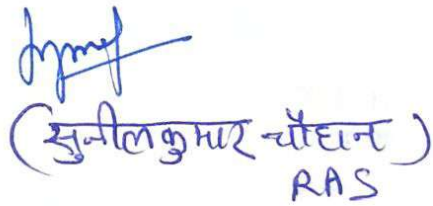 (सुनील कुमार चौहान)
RAS